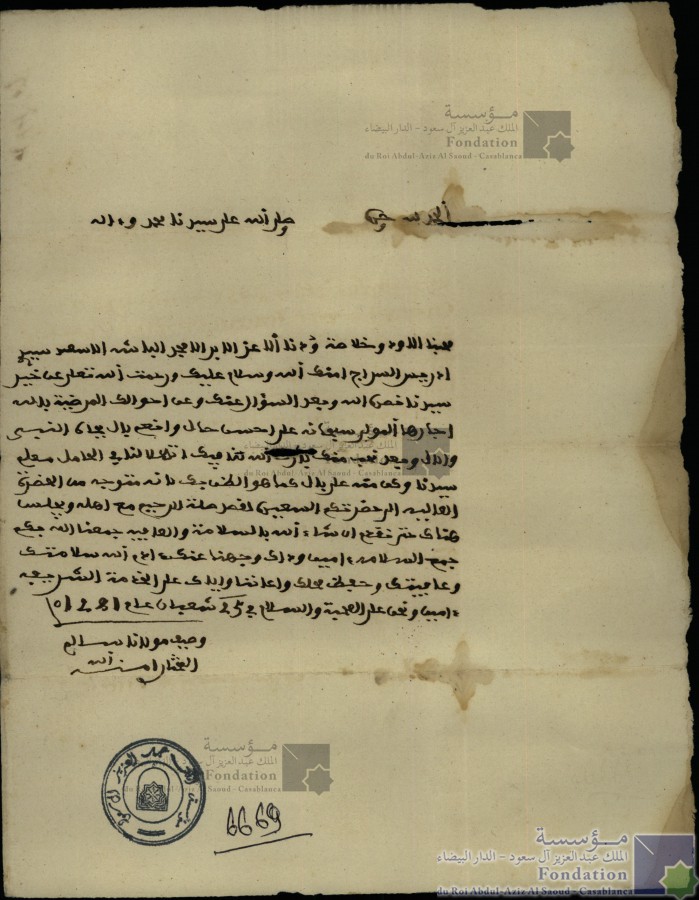 مؤسسة
الملك عبد العزيز آل سعود - الدار البيضاء
Fondation
du Roi Abdul-Aziz Al Saoud - Casablanca
الحمد لله وحده
وصلى الله على سيدنا محمد وءاله
محبنا الاود وخلاصة ودنا الاعز الابر الامجد الباشه الاسعد سيدي
ادريس السراج امنك الله وسلام عليك ورحمت الله تعلى عن خير
سيدنا نصره الله وبعد السؤال عنك وعن احوالك المرضية بالله
اجارها المولى سبحانه على احسن حال وانعم بال بجاه النبي
والال وبعد نحب منك الله تعالى فيك الحامل معلم
سيدنا وكن منه على بال كما هو الظن بك فانه متوجه من الحضرة
العالية الى حضرتكم السعيدة لقصد صلة الرحيم مع اهله ويجلس
هناك حتى نقدم ان شاء الله بالسلامة والعافية جمعنا الله بكم
جمع السلامة ءامين وادام الله سلامتك
وعافيتك وحفظ محلك واعاننا واياك على الخدمة الشريفة
ءامين ونحن على المحبة والسلام في 25 شعبان عام 1281
وصيف مولانا سالم
امنه الله
مؤسسة
الملك عبد العزيز آل سعود - الدار البيضاء
Fondation
du Roi Abdul-Aziz Al Saoud - Casablanca
6669
مؤسسة
الملك عبد العزيز آل سعود - الدار البيضاء
Fondation
du Roi Abdul-Aziz Al Saoud - Casablanca